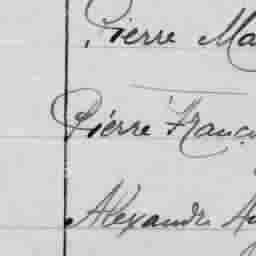 Pierre Ma
Pierre Franç
Alexandre Au